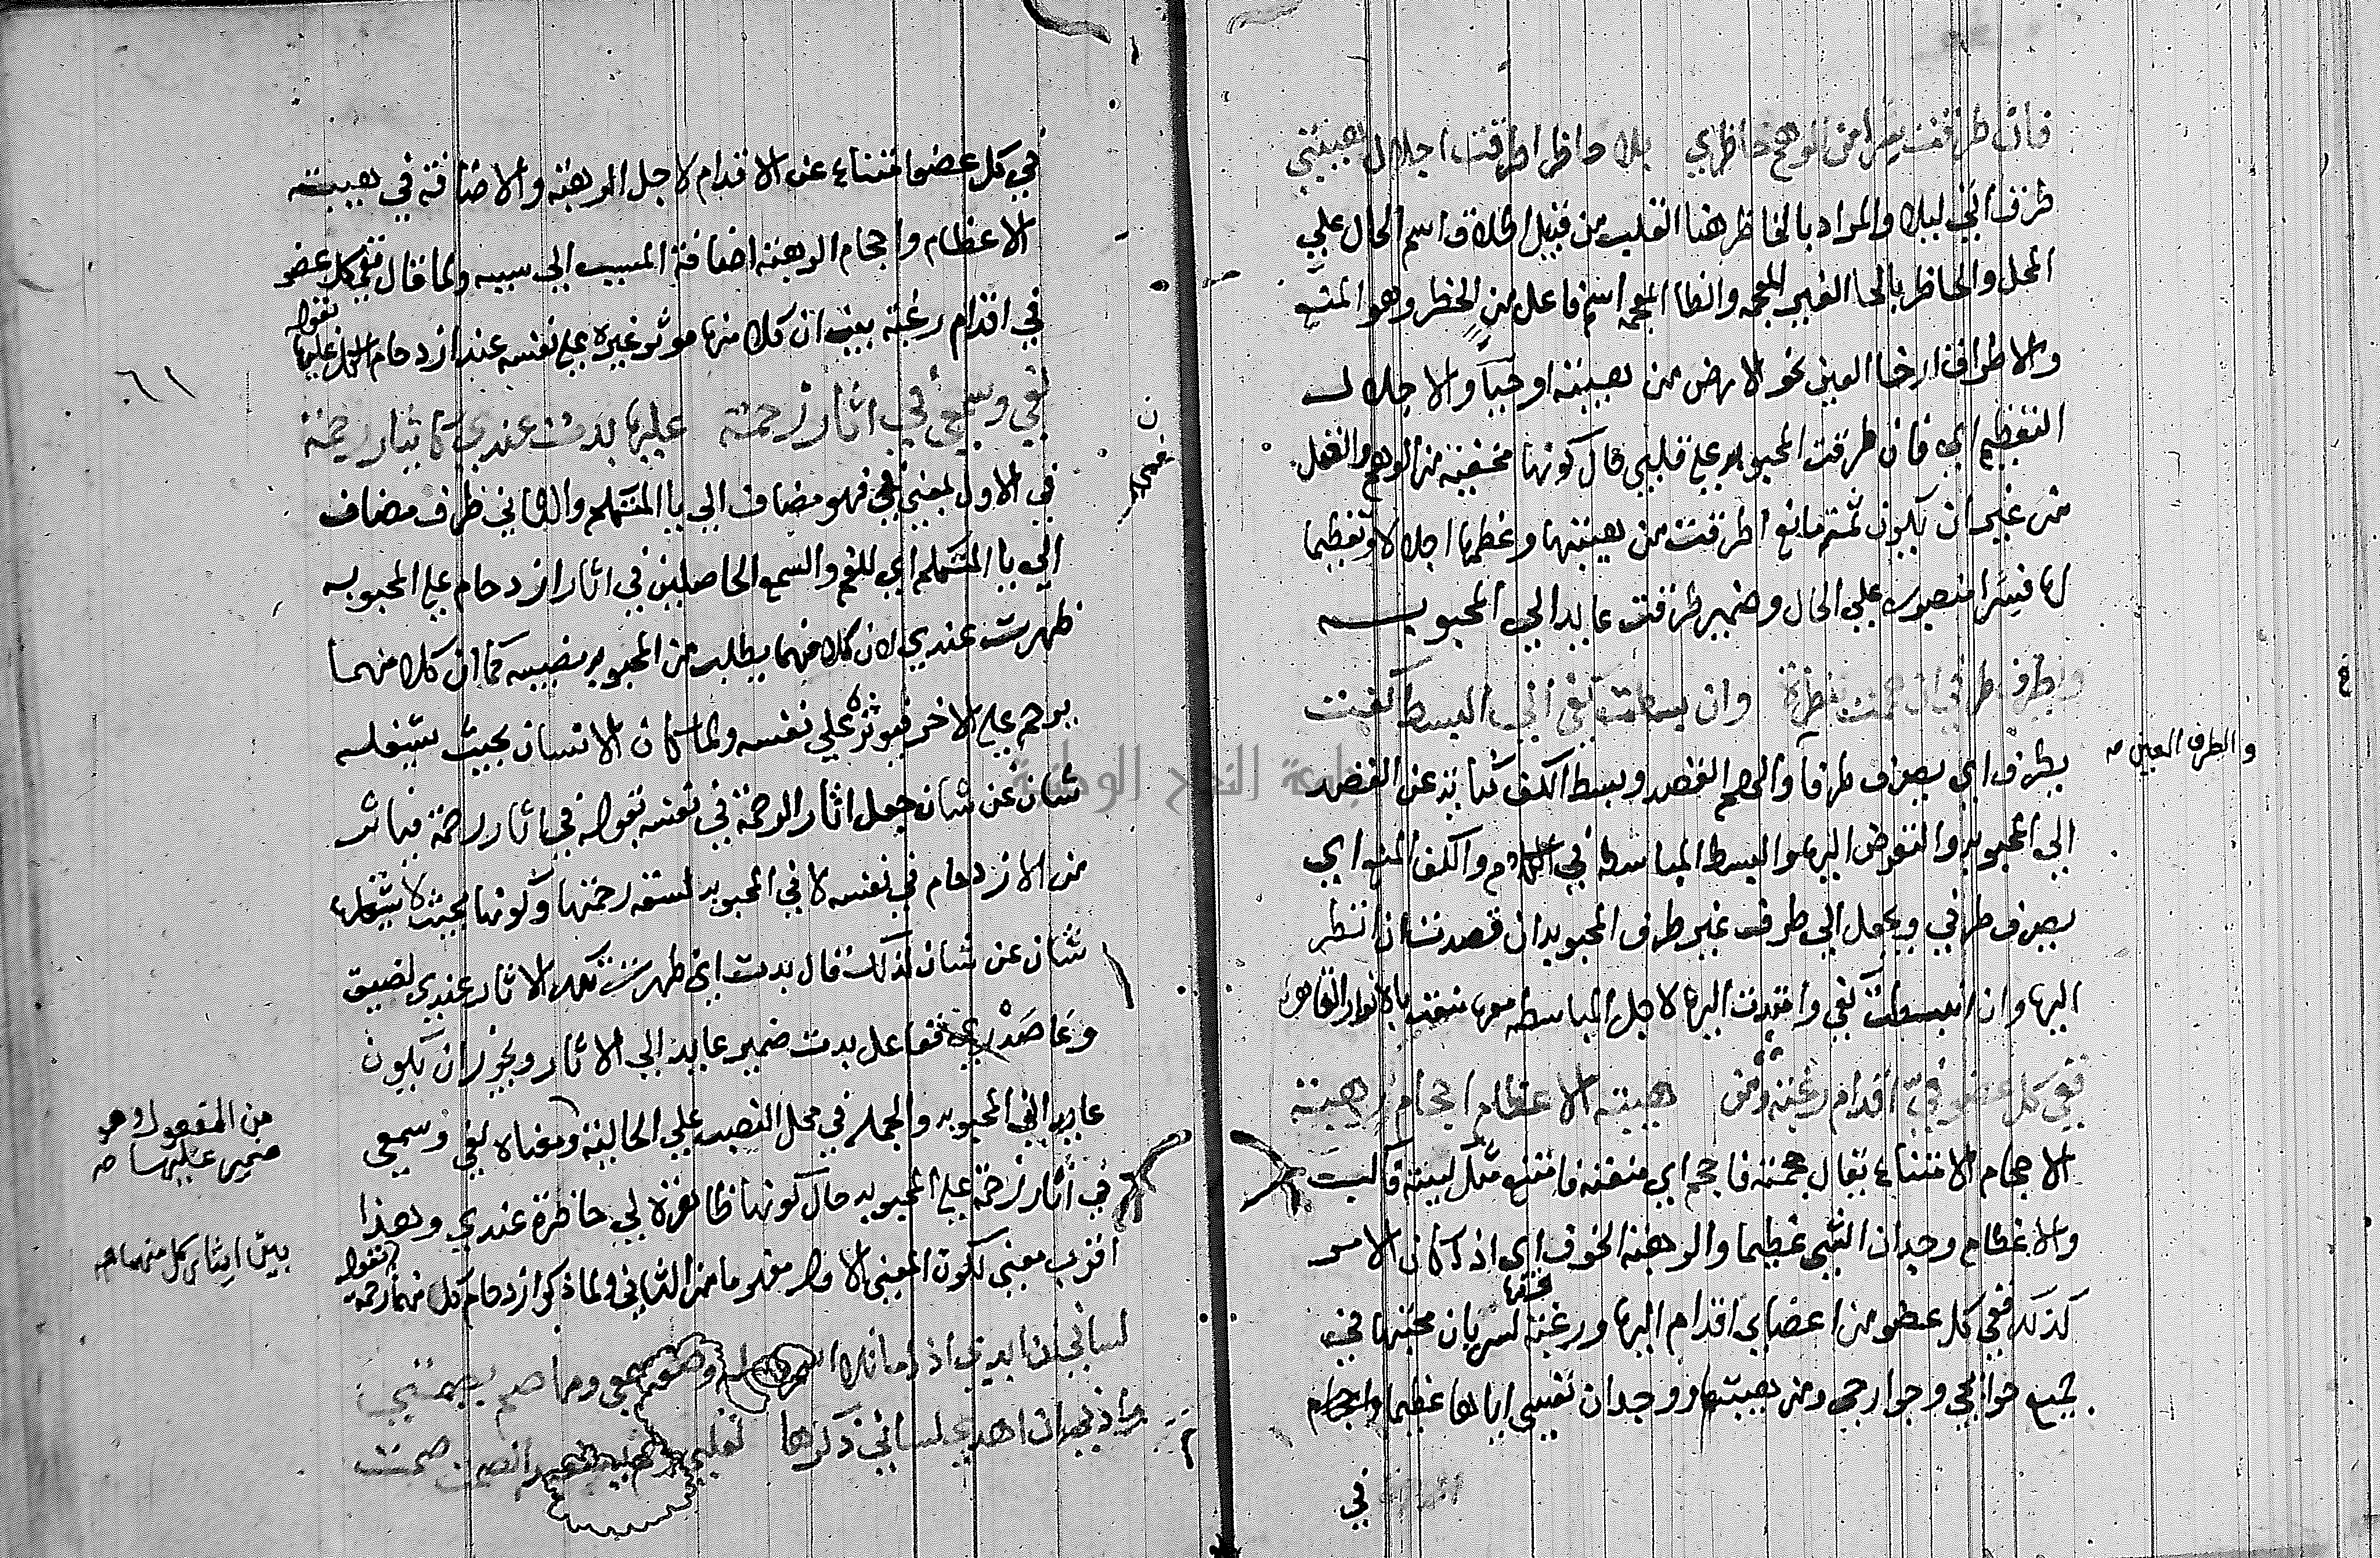 فان طرقت سرا من الوهم خاطري بلا حاظر اطرقت اجلال هيبتي
طرق اتي ليلا والمراد بالخاطر هنا القلب من قبيل اطلاق اسم الحال علي
المحل والحاظر بالحا الغير المعجمه والظا المعجمه اسم فاعل من الحظر وهو المنع
والاطراق ارخا العين نحو الارض من هيبته او حيآ والاجلال
التعظيم اي فان طرقت المحبوبه علي قلبي حال كونها مخفيه من الوهم والعقل
من غير ان يكون ثمة مانع اطرقت من هيبتها وعظمها اجلالا وتعظيما
لها فسرا منصوب علي الحال وضمير طرقت عايد الي المحبوبــه
ويطرف طرفي ان هممت بنظرة وان بسطت كفي الي البسط كفت
والطرف العين صه
يطرف اي يصرف طرفا والهم القصد وبسط الكف كناية عن القصد
الي المحبوبه والتعرض اليها والبسط المباسطه في الكلام والكف المنع اي
يصرف طرفي ويجعل الي طرف غير طرف المحبوبه ان قصدت ان انظر
اليها وان انبسطت كفي وامتدت اليها لاجل المباسطه معها منعت بالانوار القاهره
ففي كل عضو في اقدام رغبة ومن هيبة الاعظام احجام رهبة
الاحجام الامتناع يقال حجمته فاحجم اي منعته فامتنع مثل كببته فاكب
والاعظام وجدان الشي عظيما والرهبة الخوف اي اذا كان الامر
كذلك ففي كل عضو من اعضاي اقدام اليها ورغبة لسريان محبتها في
جميع جوانحي وجوارحي ومن هيبتها ووجدان نفسي اياها عظيما واحجام
في
في كل عضو امتناع عن الاقدام لاجل الرهبة والاضافة في هيبة
الاعظام واحجام الرهبة اضافة المسبب الي سببه ولما قال ففي كل عضو
في اقدام رغبة بين ان كلا منها موثر غيره علي نفسه عند ازدحام الكل عليها
بقوله
لفي وسمعي في اثار زحمة عليها بدت عندي كايثار رحمة
في الاول بمعني فمي فهو مضاف الي يا المتكلم والثاني ظرف مضاف
الي يا المتكلم اي للفم والسمع الحاصلين في اثار ازدحام علي المحبوبه
ظهرت عندي لان كلا منهما يطلب من المحبوبه نصيبه كما ان كلا منهما
يرحم علي الاخر فيوثره علي نفسه ولما كان الانسان بحيث يشغله
شان عن شان جعل اثار الرحمة في نفسه بقوله في اثار زحمة
من الازدحام في نفسه لا في المحبوبه لسعة رحمتها وكونها بحيث لا يشغلها
شان عن شان لذلك قال بدت اي ظهرت تلك الاثار عندي لضيق
وعا صدري ففاعل بدت ضمير عايد الي الاثار ويجوز ان يكون
عايدا الي المحبوبه والجمله في محل النصب علي الحالية ومعناه لفي وسمعي
من المفعول وهو
ضمير عليها صه
في اثار زحمة علي المحبوبه حال كونها ظاهرة لي حاضرة عندي وهذا
اقرب معني لكون المعني الاول مفهوما من الثاني ولما ذكر ازدحام كل منهما رحمه
بين ايثار كل منهما صه
بقوله
لساني ان ابدي اذا ما تلا اسمها له وصفه سمعي وما صم يصمت
واذني ان اهدي لساني ذكرها لقلبي ولم يستعبد الصمت صمت
٦١